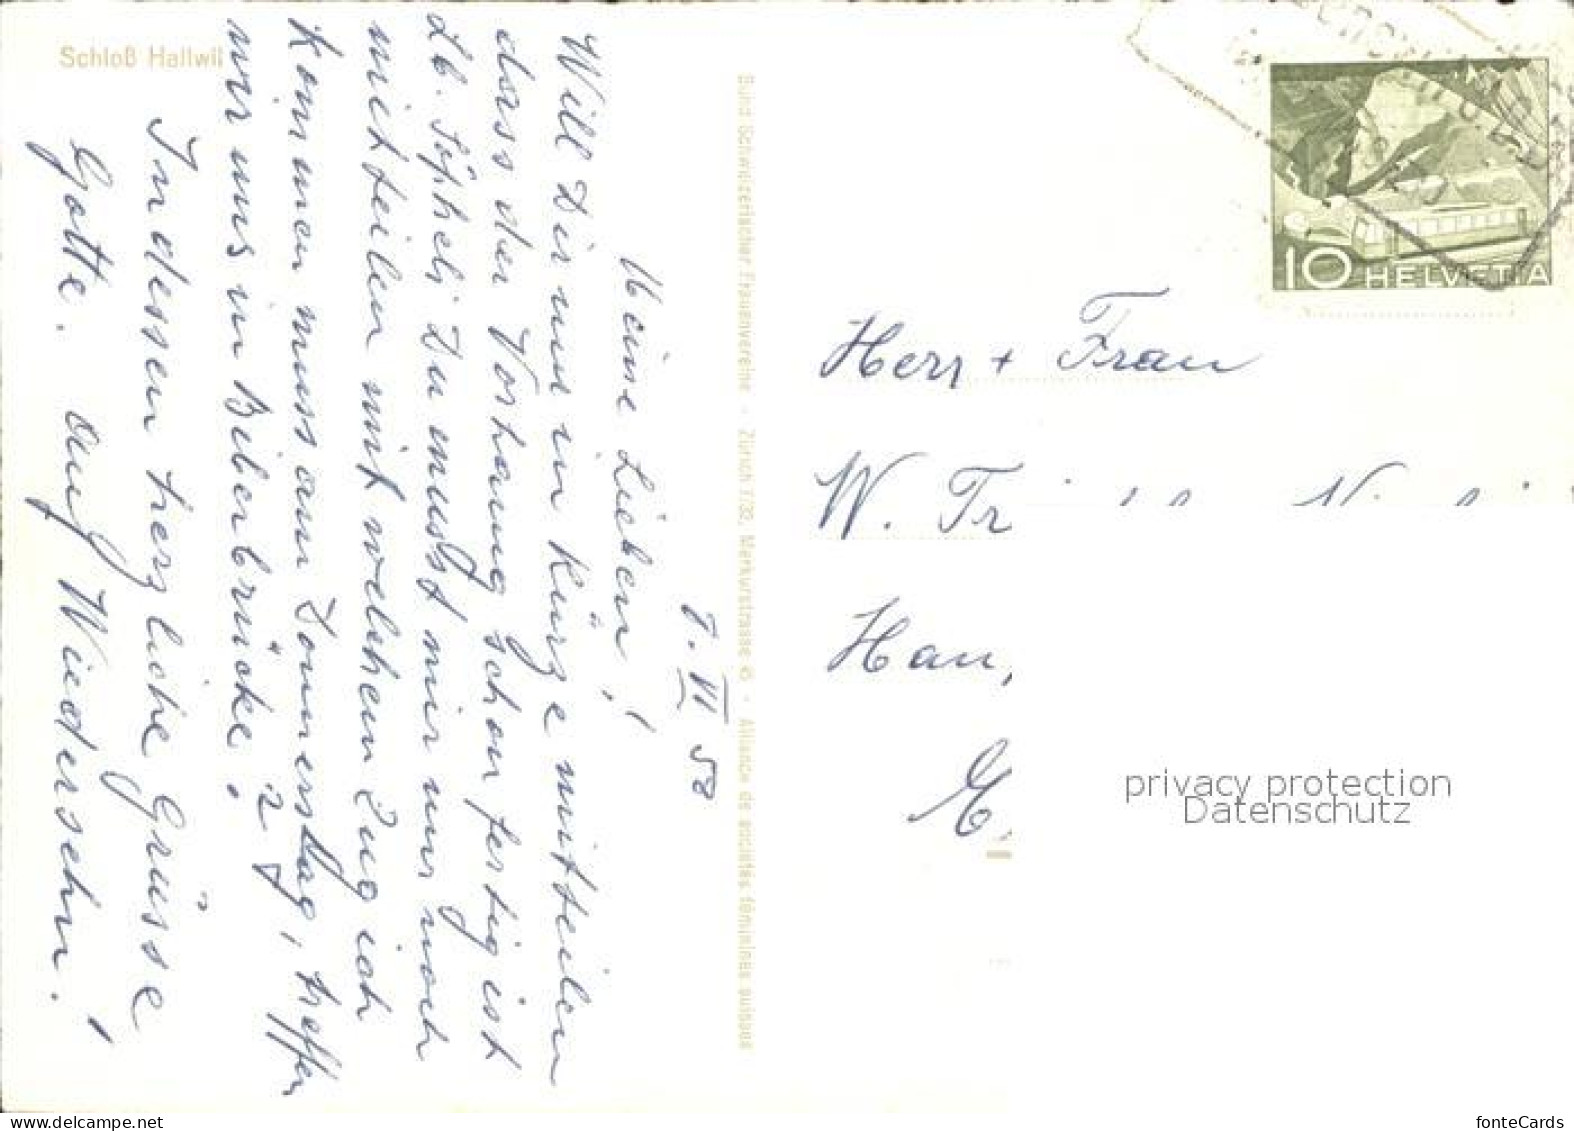 Schloß Hallwil
7. VI 50
Meine Lieben!
Will Dir nur in Kürze mitteilen
dass der Vorhang schon fertig ist
Lb. Söpheli Du musst mir nur noch
mitteilen mit welchem Zug ich
kommen muss am Donnerstag, treffen
wir uns in Biberbrücke?
Indessen herzliche Grüsse
Gotte. Auf Wiedersehn!
Bund Schweizerischer Frauenvereine - Zürich 7/32, Merkurstrasse 45 - Alliance de sociétés féminines suisses
10 HELVETIA
Herr + Frau
W. Tr
Han
privacy protection
Datenschutz
www.delcampe.net
fonteCards